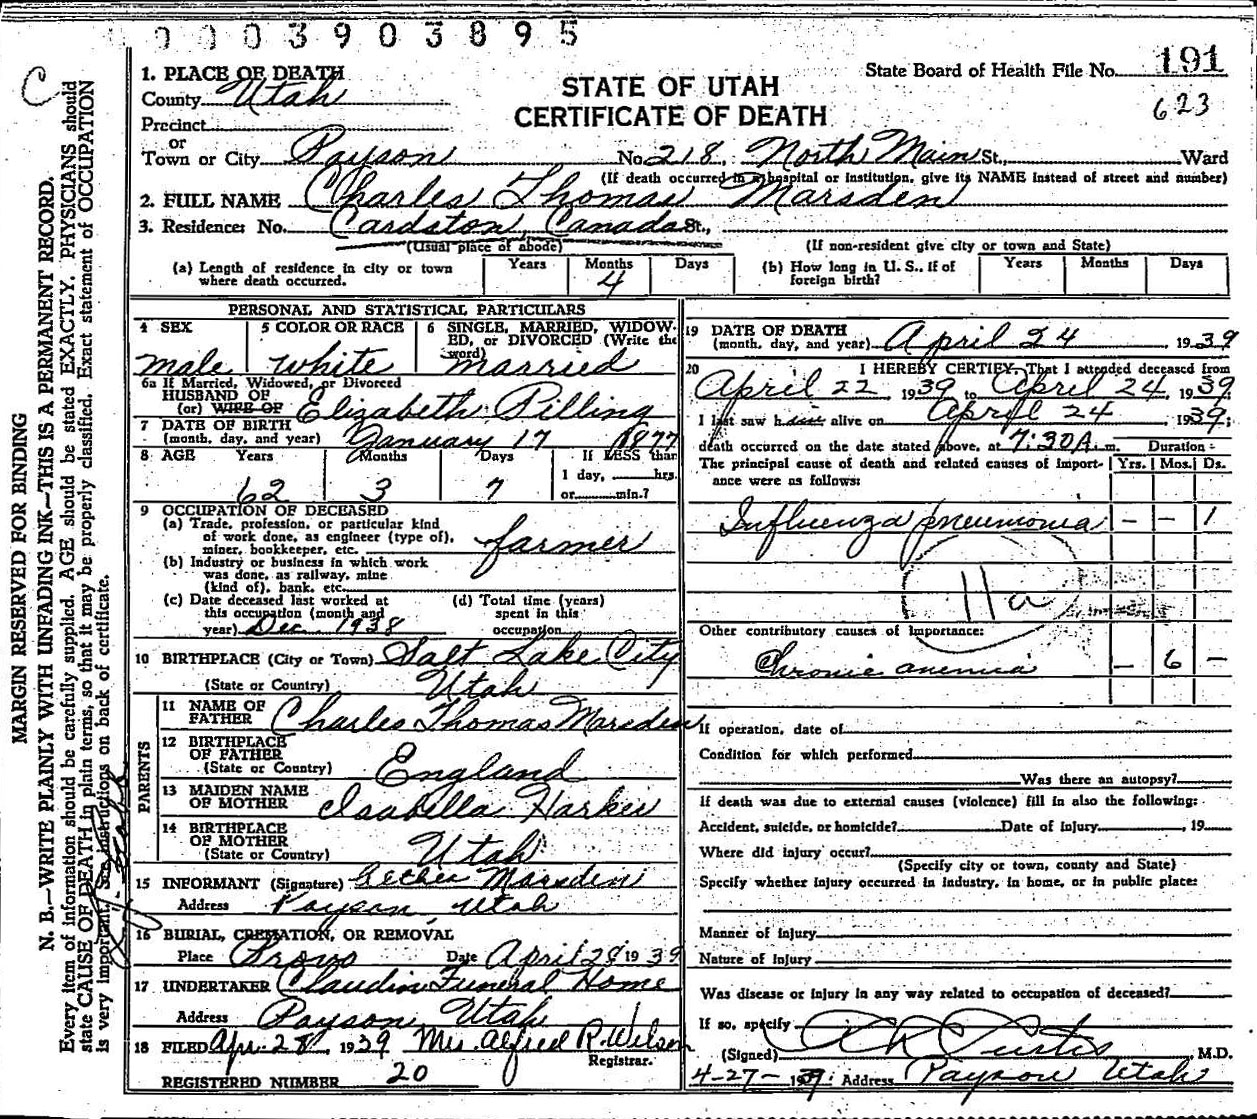 0003903895
C
MARGIN RESERVED FOR BINDING
N. B.—WRITE PLAINLY WITH UNFADING INK—THIS IS A PERMANENT RECORD.
Every item of information should be carefully supplied. AGE should be stated EXACTLY. PHYSICIANS should
state CAUSE OF DEATH in plain terms, so that it may be properly classified. Exact statement of OCCUPATION
is very important. See instructions on back of certificate.
State Board of Health File No. 191
623
STATE OF UTAH
CERTIFICATE OF DEATH
1. PLACE OF DEATH
County Utah
Precinct
or
Town or City Payson No. 218 North Main St., Ward
(If death occurred in a hospital or institution, give its NAME instead of street and number)
2. FULL NAME Charles Thomas Marsden
3. Residence: No. Cardston, Canada St.,
(Usual place of abode) (If non-resident give city or town and State)
(a) Length of residence in city or town where death occurred. Years Months 4 Days
(b) How long in U. S., if of foreign birth? Years Months Days
PERSONAL AND STATISTICAL PARTICULARS
4 SEX 5 COLOR OR RACE 6 SINGLE, MARRIED, WIDOWED, or DIVORCED (Write the word)
male white married
6a If Married, Widowed, or Divorced
HUSBAND OF
(or) WIFE OF Elizabeth Pilling
7 DATE OF BIRTH
(month, day, and year) January 17 1877
8 AGE Years Months Days If LESS than
62 3 7 1 day, hrs.
or min.?
9 OCCUPATION OF DECEASED
(a) Trade, profession, or particular kind
of work done, as engineer (type of),
miner, bookkeeper, etc. farmer
(b) Industry or business in which work
was done, as railway, mine
(kind of), bank, etc.
(c) Date deceased last worked at
this occupation (month and
year) Dec. 1938
(d) Total time (years)
spent in this
occupation
10 BIRTHPLACE (City or Town) Salt Lake City
(State or Country) Utah
PARENTS
11 NAME OF
FATHER Charles Thomas Marsden
12 BIRTHPLACE
OF FATHER
(State or Country) England
13 MAIDEN NAME
OF MOTHER Isabella Harker
14 BIRTHPLACE
OF MOTHER
(State or Country) Utah
15 INFORMANT (Signature) Marsden
Address Payson, Utah
16 BURIAL, CREMATION, OR REMOVAL
Place Provo Date April 28 1939
17 UNDERTAKER Claudin Funeral Home
Address Payson Utah
18 FILED Apr. 28, 1939 Mrs. Alfred R. Wilson
Registrar.
REGISTERED NUMBER 20
19 DATE OF DEATH
(month, day, and year) April 24 1939
20 I HEREBY CERTIFY, That I attended deceased from
April 22, 1939 to April 24, 1939
I last saw him alive on April 24 1939;
death occurred on the date stated above, at 7:30 A. m. Duration
The principal cause of death and related causes of importance were as follows: Yrs. Mos. Ds.
Influenza pneumonia – – 1
11a
Other contributory causes of importance:
Chronic anemia – 6 –
If operation, date of
Condition for which performed
Was there an autopsy?
If death was due to external causes (violence) fill in also the following:
Accident, suicide, or homicide? Date of injury , 19
Where did injury occur?
(Specify city or town, county and State)
Specify whether injury occurred in industry, in home, or in public place:
Manner of injury
Nature of injury
Was disease or injury in any way related to occupation of deceased?
If so, specify
(Signed) Curtis M.D.
4-27-1939. Address Payson Utah